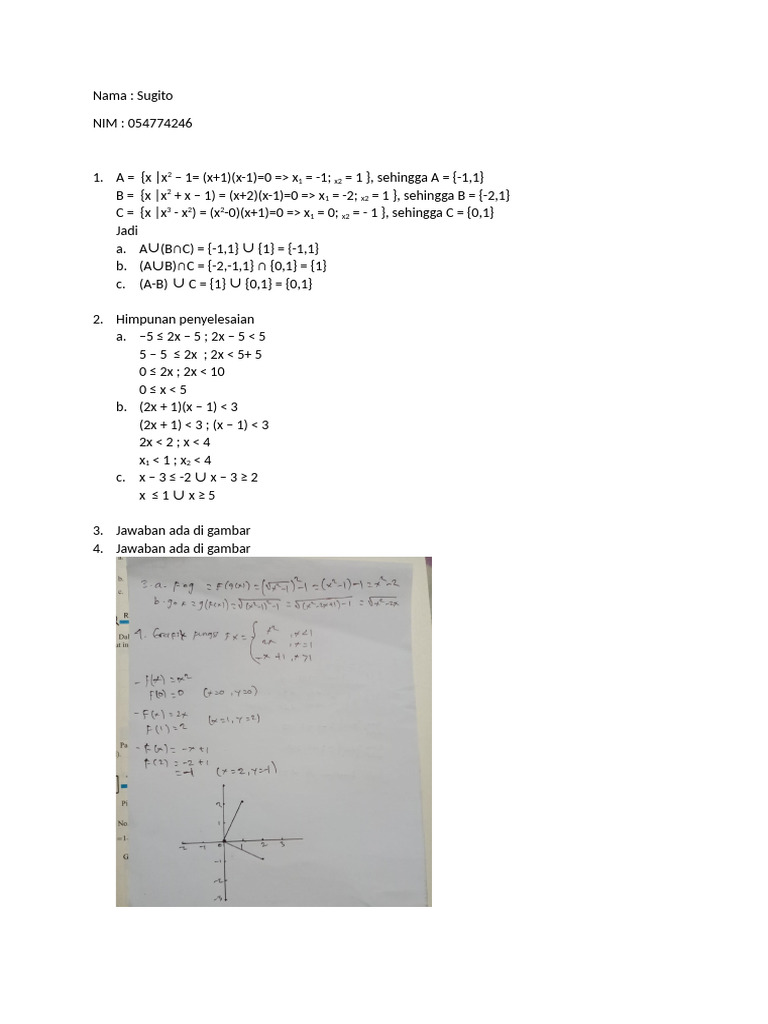 Nama : Sugito
NIM : 054774246
1. A = {x |x² – 1= (x+1)(x-1)=0 => x₁ = -1; ₓ₂ = 1 }, sehingga A = {-1,1}
B = {x |x² + x – 1) = (x+2)(x-1)=0 => x₁ = -2; ₓ₂ = 1 }, sehingga B = {-2,1}
C = {x |x³ - x²) = (x²-0)(x+1)=0 => x₁ = 0; ₓ₂ = - 1 }, sehingga C = {0,1}
Jadi
a. A∪(B∩C) = {-1,1} ∪ {1} = {-1,1}
b. (A∪B)∩C = {-2,-1,1} ∩ {0,1} = {1}
c. (A-B) ∪ C = {1} ∪ {0,1} = {0,1}
2. Himpunan penyelesaian
a. –5 ≤ 2x – 5 ; 2x – 5 < 5
5 – 5 ≤ 2x ; 2x < 5+ 5
0 ≤ 2x ; 2x < 10
0 ≤ x < 5
b. (2x + 1)(x – 1) < 3
(2x + 1) < 3 ; (x – 1) < 3
2x < 2 ; x < 4
x₁ < 1 ; x₂ < 4
c. x – 3 ≤ -2 ∪ x – 3 ≥ 2
x ≤ 1 ∪ x ≥ 5
3. Jawaban ada di gambar
4. Jawaban ada di gambar
3. a. Fog = F(g(x)) = (√x²-1)² -1 = (x²-1)-1 = x²-2
b. gox = g(F(x)) = √(x²-1)²-1 = √(x²-2x+1)-1 = √x²-2x
4. Grafik fungsi Fx = { x² , x<1
2x , x=1
-x +1 , x>1
- F(x) = x²
F(0) = 0 (x=0, y=0)
- F(x) = 2x
F(1) = 2 (x=1, y=2)
- F(x) = -x+1
F(2) = -2+1
= -1 (x=2, y=-1)
2
1
-2 -1 0 1 2 3
-1
-2
-3